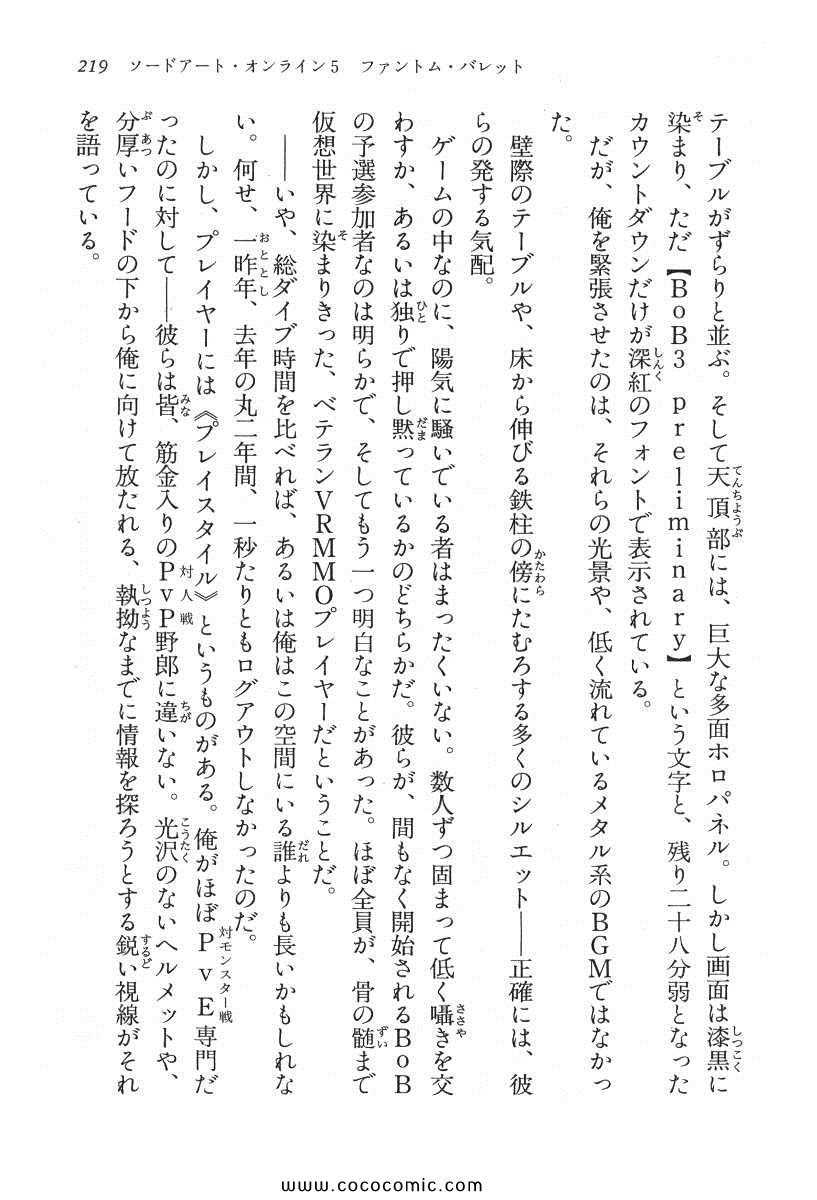 219 ソードアート・オンライン5 ファントム・バレット
テーブルがずらりと並ぶ。そして天頂部には、巨大な多面ホロパネル。しかし画面は漆黒に
染まり、ただ【BoB3 preliminary】という文字と、残り二十八分弱となった
カウントダウンだけが深紅のフォントで表示されている。
だが、俺を緊張させたのは、それらの光景や、低く流れているメタル系のBGMではなかっ
た。
壁際のテーブルや、床から伸びる鉄柱の傍にたむろする多くのシルエット――正確には、彼
らの発する気配。
ゲームの中なのに、陽気に騒いでいる者はまったくいない。数人ずつ固まって低く囁きを交
わすか、あるいは独りで押し黙っているかのどちらかだ。彼らが、間もなく開始されるBoB
の予選参加者なのは明らかで、そしてもう一つ明白なことがあった。ほぼ全員が、骨の髄まで
仮想世界に染まりきった、ベテランVRMMOプレイヤーだということだ。
――いや、総ダイブ時間を比べれば、あるいは俺はこの空間にいる誰よりも長いかもしれな
い。何せ、一昨年、去年の丸二年間、一秒たりともログアウトしなかったのだ。
しかし、プレイヤーには《プレイスタイル》というものがある。俺がほぼPvE専門だ
ったのに対して――彼らは皆、筋金入りのPvP野郎に違いない。光沢のないヘルメットや、
分厚いフードの下から俺に向けて放たれる、執拗なまでに情報を探ろうとする鋭い視線がそれ
を語っている。
www.cococomic.com